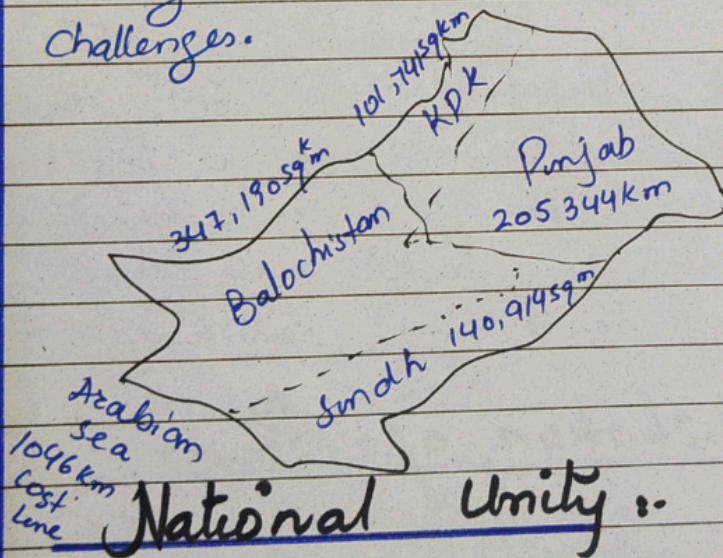 Challenges.
101,741sqkm
KPK
Punjab
205344km
347,190sqkm
Balochistan
140,914sqm
Sindh
Arabian
Sea
1046km
Cost
Line
National Unity :.